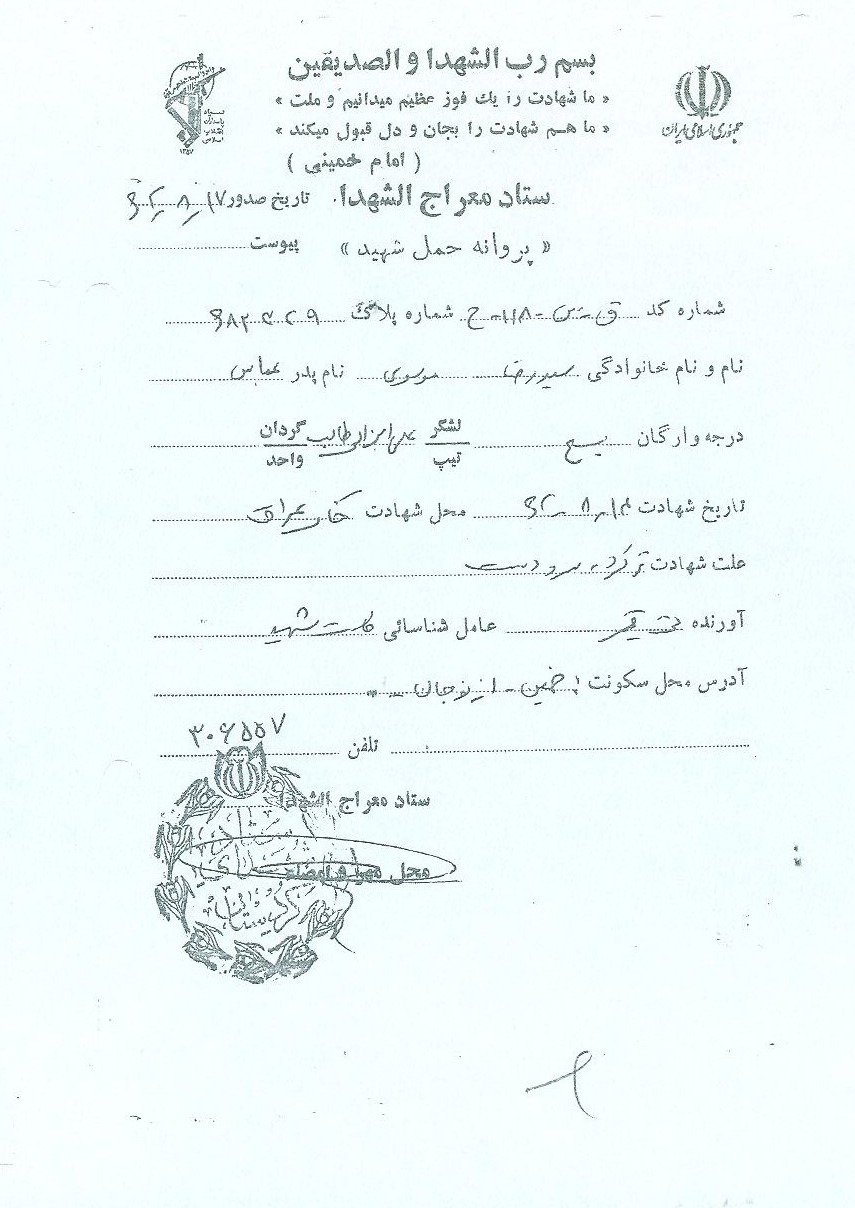 بسم رب الشهدا والصدیقین
« ما شهادت را یك فوز عظیم میدانیم و ملت »
« ما هم شهادت را بجان و دل قبول میکند »
( امام خمینی )
جمهوری اسلامی ایران
سپاه پاسداران انقلاب اسلامی
۱۳۵۷
ستاد معراج الشهدا. تاریخ صدور ۶۲/۸/۱۷
« پروانه حمل شهید » پیوست
شماره کد شماره پلاك
نام و نام خانوادگی سیدرضا موسوی نام پدر عباس
درجه وارگان بسیج لشگر تیپ علی ابن ابی طالب گردان واحد
تاریخ شهادت ۶۲-۸-۱۴ محل شهادت خاک عراق
علت شهادت ترکش
آورنده عامل شناسائی کارت شهید
آدرس محل سکونت : خمین
تلفن ۳۰۶۵۵۷
ستاد معراج الشهدا
محل مهر و امضاء
کردستان